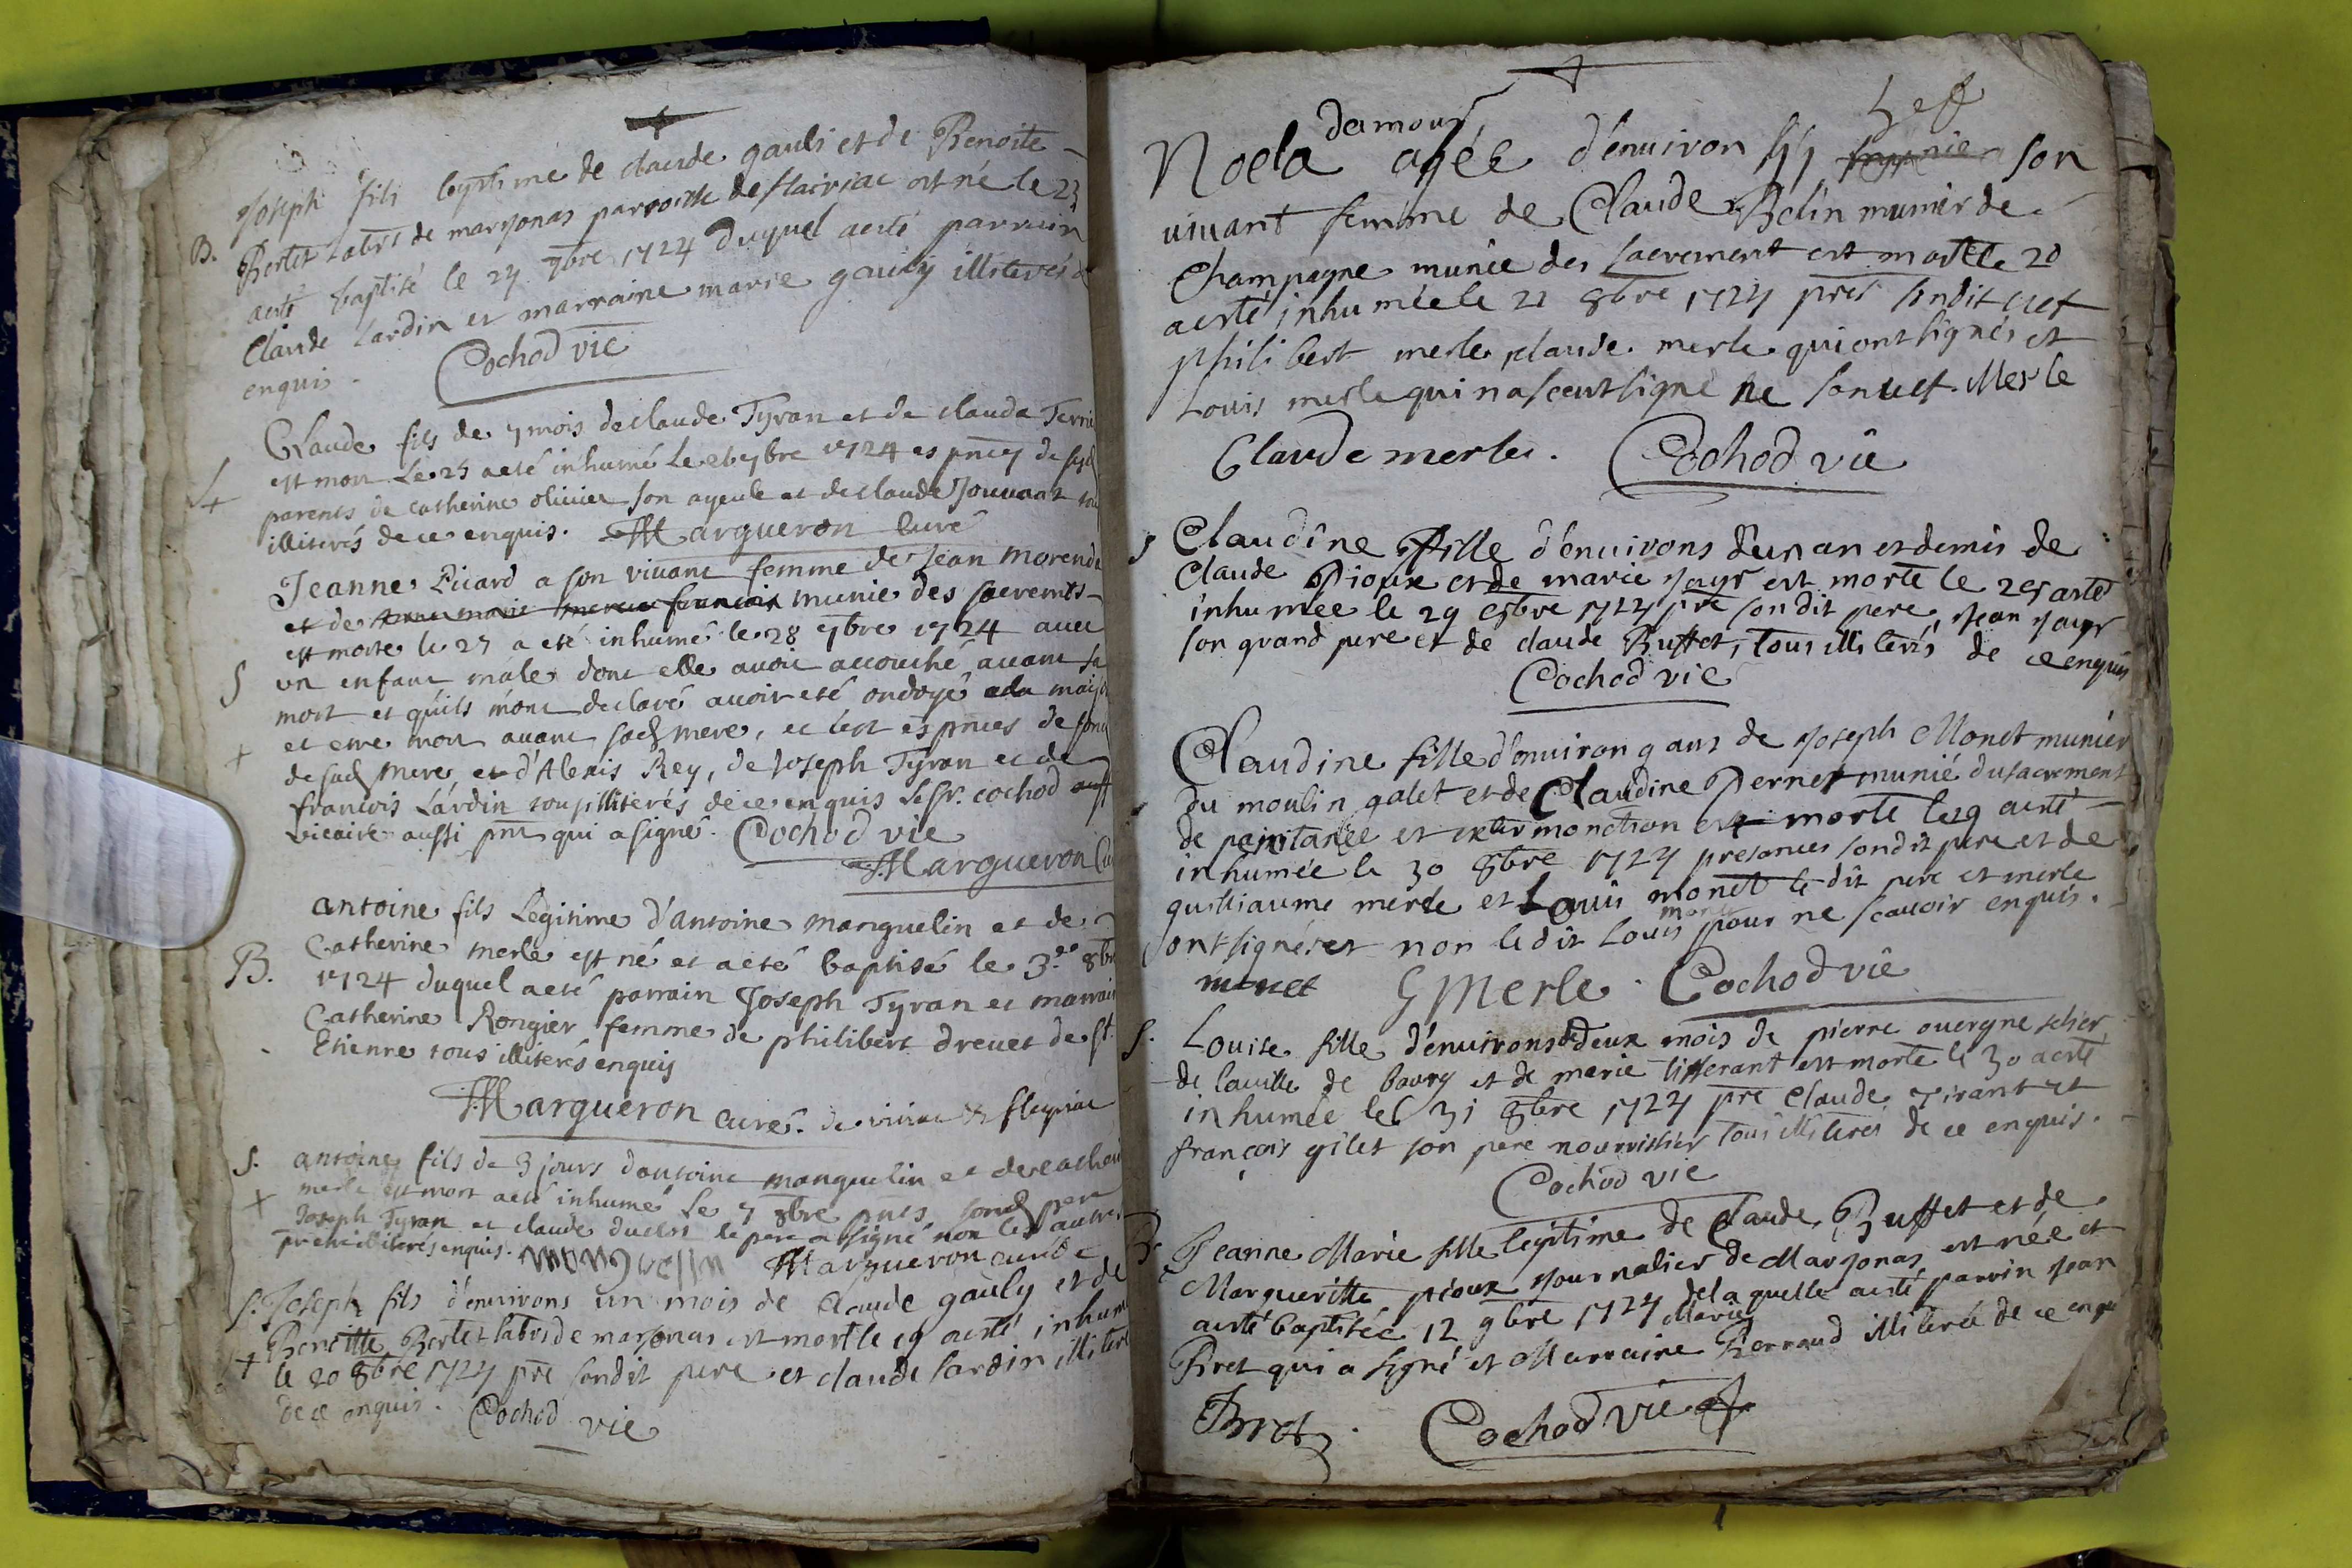 Joseph fils legitime de claude gauli et de Benoite
B. Bertet labrs de marsonas parroisse de flairiac est né le 23
aesté baptisé le 24 7bre 1724 duquel aesté parrain
Claude Lardin et marraine marie gauly illiterés de
enquis.
Cochod vic
Claude fils de 7 mois de claude Tyran et de clauda
est mort Le 25 aeté inhumé Le 7bre 1724 es pnces de
parents de catherine olivier son ayeule et de claude Jouvant
illiterés de ce enquis. Margueron Curé
Jeanne Picard a son vivant femme de Jean Morend
et de munie des sacremts
S est morte le 27 a eté inhumé le 28 7bre 1724 avec
un enfant mâle dont elle avoit accouché avant sa
mort et qu'ils m'ont declaré avoir eté ondoyé a la maison
et etre mort avant sad mere, et c'est es pnces de
de sad mere et d'Alexis Rey, de Joseph Tyran et de
francois Lardin tous illiterés de ce enquis Le Sr. cochod
vicaire aussi pnt qui a signé. Cochod vic
Margueron
antoine fils Legitime d'antoine manguelin et de
B. Catherine merle est né et aeté baptisé le 3.e 8bre
1724 duquel aeté parrain Joseph Tyran et marraine
Catherine Rongier femme de philibert drevet de st.
Etienne tous illiterés enquis
Margueron curé. de viriac & fleyriac
S. antoine fils de 3 jours d'antoine manguelin et de
merle est mort aeté inhumé Le 7 8bre pnts sond pere
Joseph Tyran et claude duclos le pere a signé non les autres
illiterés enquis. manguelin Margueron curé
S. Joseph fils d'environs un mois de claude gauly et de
Benoitte Bertet labrs de marsonas est mort le 19 aesté inhumé
le 20 8bre 1724 pre sondit pere et claude Lardin
de ce enquis. Cochod vic
damour
Noela agée d'environ son
vivant femme de Claude Belin munier de
Champagne munie des sacrement est morte le 20
aesté inhumée le 21 8bre 1724 pres sondit
philibert merle claude merle qui ont signés et
Louis merle qui na sceut signé Merle
Claude merle. Cochod vic
S Claudine fille d'environs d'un an et demis de
Claude Pioux et de marie Jayr est morte le aesté
inhumée le 29 8bre 1724 pre son dit pere, Jean Jayr
son grand pere et de claude Buffet, tous illiterés de ce enquis
Cochod vic
Claudine fille d'environ 9 ans de Joseph Monet munier
du moulin galet et de Claudine Pernet munié du sacrement
de penitance et est morte le 29 aesté
inhumée le 30 8bre 1724 presances sondit pere et de
gulliaume merle et Louis monet le dit pere et merle
ont signés et non le dit Louis pour ne scavoir enquis.
monet G Merle. Cochod vic
S. Louise fille d'environs deux mois de pierre ouergne selier
de la ville de bourg et de marie tisserant est morte le 30 aesté
inhumée le 31 8bre 1724 pre Claude Tirant et
françois gilet son pere nourrissier tous illiterés de ce enquis.
Cochod vic
B. Jeanne Marie fille legitime de Claude Buffet et de
Margueritte pioux Journalier de Marsonas est née et
aesté baptisée 12 9bre 1724 de laquelle aesté parrin Jean
Marie
Bret qui a signé et Marraine Perraud illiterée de ce
Bret. Cochod vic